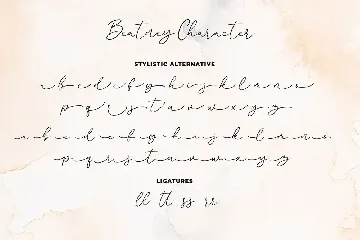 Beatrey Character
STYLISTIC ALTERNATIVE
a b c d e f g h i j k l m n o
p q r s t u v w x y z
a b c d e f g h i j k l m n o
p q r s t u v w x y z
LIGATURES
ll tt ss rr